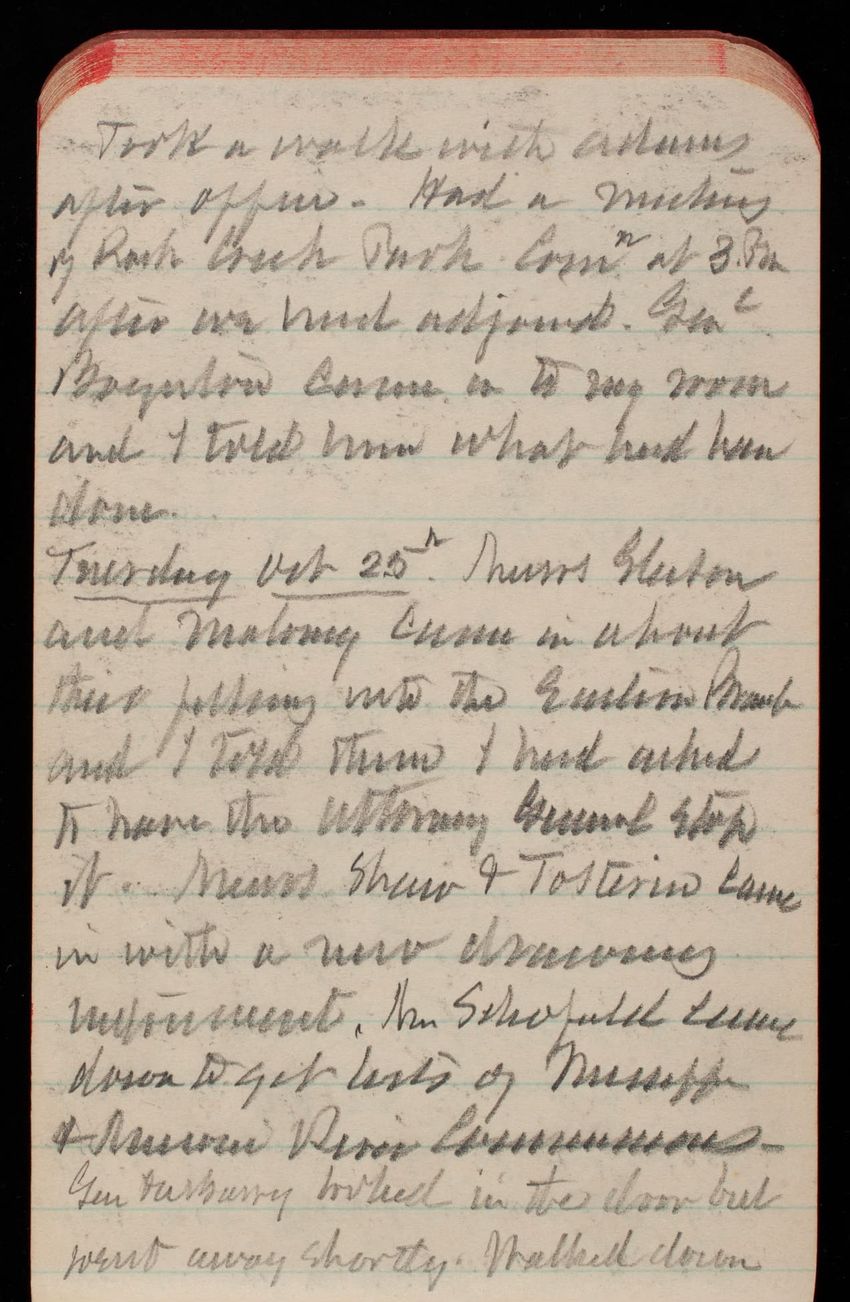 Took a walk with Adams
after office. Had a meeting
of Rock Creek Park Comn at 3 PM
after we had adjourned. Genl
Boynton came in to my room
and I told him what had been
done.
Tuesday Oct 25th. Messrs Gleeson
and Maloney came in about
their filling into the Eastern Branch
and I told them I had asked
to have the Attorney General stop
it. Messrs Shaw & came
in with a new drawing
instrument. Mr Schofield came
down to get lists of Mississippi
& Missouri River Commissions-
Gen looked in the door but
went away shortly. Walked down